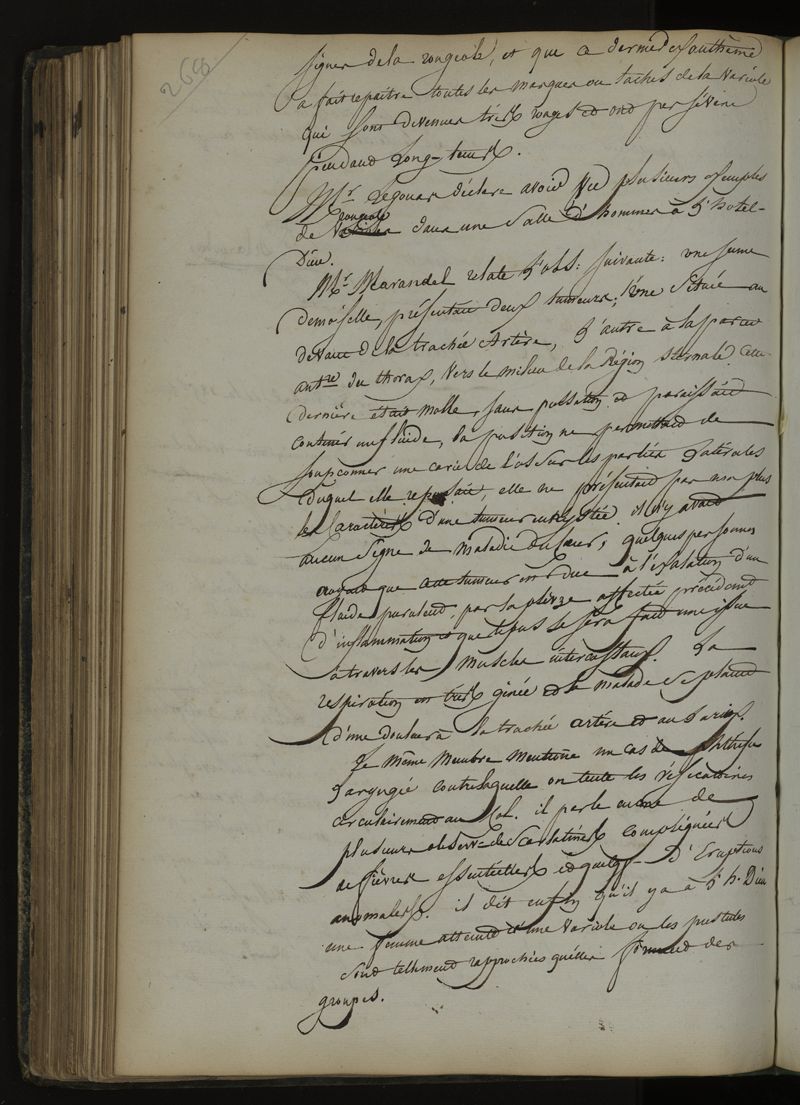 268
signes de la rougeole, et que ce dernier exanthème
a fait repaitre toutes les marques ou taches de la variole
qui sont devenues très rouges et ont persévéré
pendant long-tems.
Mr. Legouas déclare avoir vu plusieurs exemples
de rougeole dans une salle d'hommes à l'hotel-
Dieu.
Mr. Marandel relate l'obs: suivante: une jeune
demoiselle, présentait deux tumeurs; l'une située au
devant de la trachée artère, l'autre à la partie
antre du thorax, vers le milieu de la Région sternale. Cette
dernière était molle, sans pulsation et paraissait
contenir un fluide, sa position ne permettait de
soupçonner une carie de l'os sur les parties latérales
duquel elle reposait, elle ne présentait pas non plus
les Caractères d'une tumeur enkystée il n'y avait
aucun signe de maladie du Cœur; quelques personnes
croyent que cette tumeur est due à l'exalation d'un
fluide purulent, par la plèvre affectée précédemt
d'inflammation et que le pus se sera fait une issue
à travers les muscles intercostaux. La
respiration est très génée et la malade se plaint
d'une douleur à la trachée artère et au larinx.
Le même Membre Mentionne un cas de phthisie
laryngée contre laquelle on tente les vésicatoires
circulairement au Col. il parle aussi de
plusieurs observ. de Scarlatines compliquées
de fièvres essentielles et quelqf- D'Eruptions
anomales. il dit enfin qu'il y a à l'h. Dieu
une femme atteinte d'une variole ou les pustules
sont tellement rapprochées qu'elles forment des
groupes.